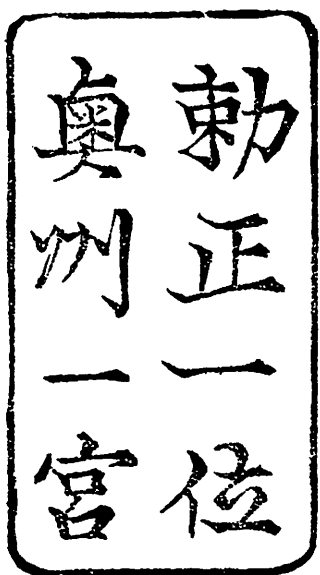 勅正一位
奥州一宮